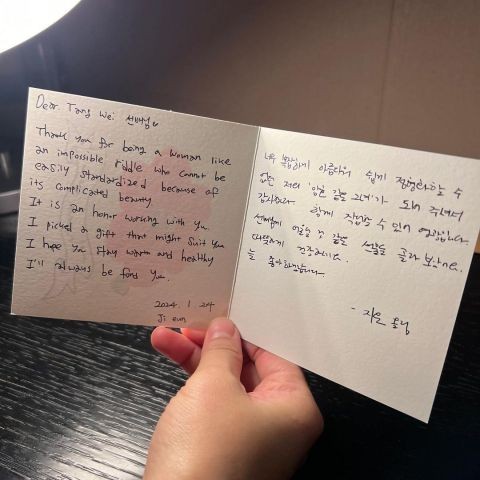 Dear. Tang Wei 선배님
Thank you for being a woman like
an impossible riddle who cannot be
easily standardized because of
its complicated beauty
It is an honor working with you
I picked a gift that might suit you
I hope you stay warm and healthy
I'll always be fond you.
2024. 1. 24
Ji eun
너무 복잡하게 아름다워 쉽게 정형화할 수
없는 저의 수수께끼가 되어 주셔서
감사해요. 함께 작업할 수 있어 영광입니다.
선배님께 어울릴 것 같은 선물을 골라 보았네요.
따뜻하게 건강하세요.
늘 좋아하겠습니다.
- 지은 올림